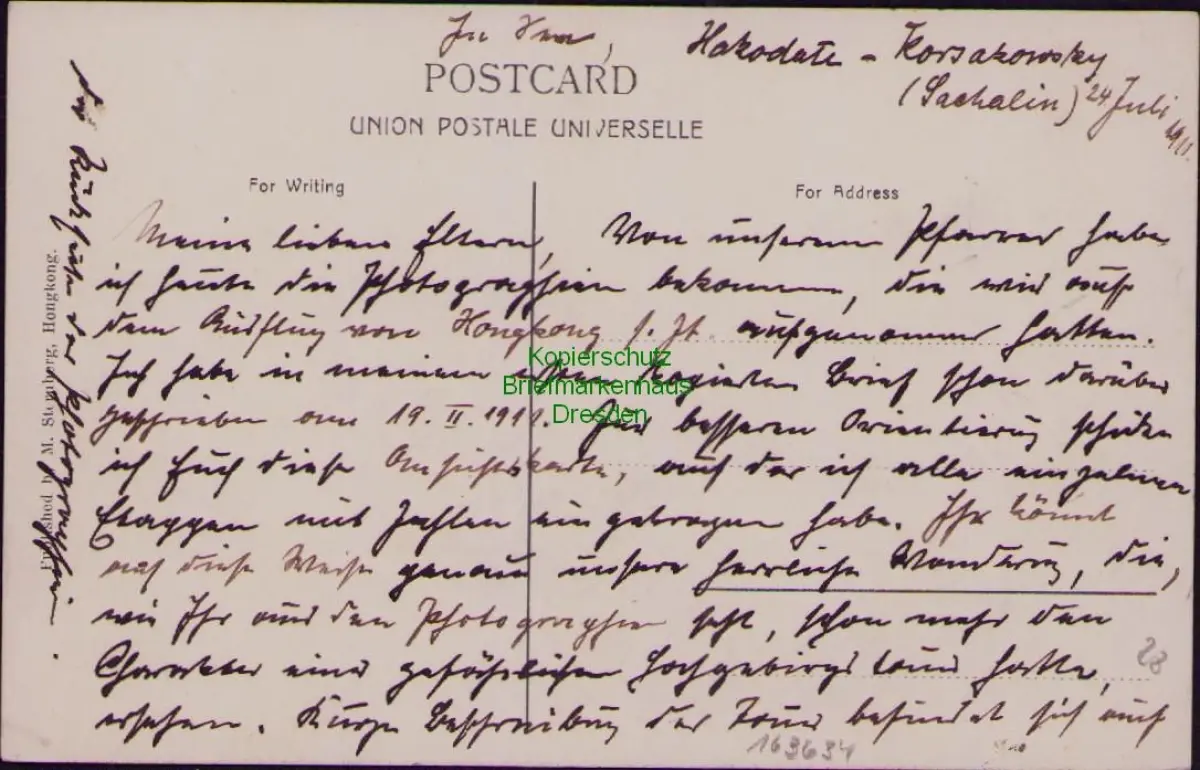 In See, Hakodate - Korsakowsky
(Sachalin) 24 Juli
1911.
POSTCARD
UNION POSTALE UNIVERSELLE
For Writing
For Address
Meine lieben Eltern, Von unserem Pfarrer habe
ich heute die Photographien bekommen, die wir auf
dem Ausflug von Hongkong s. Zt. aufgenommen hatten.
Ich habe in meinem kopierten Brief schon darüber
geschrieben am 19. II. 1911. Zur besseren Orientierung schicke
ich Euch diese Ansichtskarte, auf der ich alle einzelnen
Etappen mit Zahlen eingetragen habe. Ihr könnt
auf diese Weise genau unsere herrliche Wanderung, die,
wie Ihr aus den Photographien seht, schon mehr den
Charakter einer gefährlichen Hochgebirgstour hatte,
ersehen. Kurze Beschreibung der Tour befindet sich auf
der Rückseite der Photographien.
Published by M. Sternberg, Hongkong.
Kopierschutz
Briefmarkenhaus
Dresden
28
163634